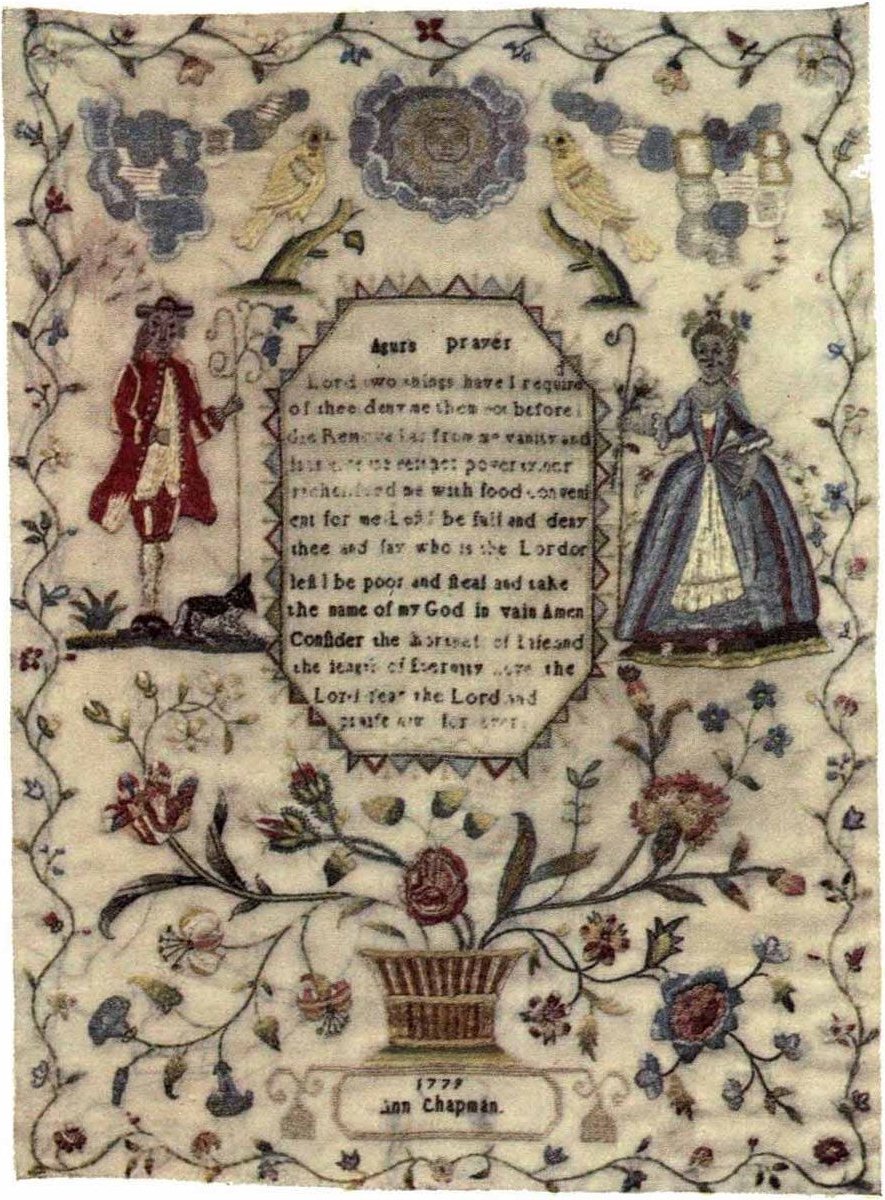 Agurs prayer
Lord two things have I require
of thee deny me them not before I
die Remove far from me vanity and
lies give me neither poverty nor
riches feed me with food conveni
ent for me Leſt I be full and deny
thee and ſay who is the Lord or
leſt I be poor and ſteal and take
the name of my God in vain Amen
Conſider the of Life and
the length of Eternity the
Lord fear the Lord and
praiſe for ever
1779
Ann Chapman.